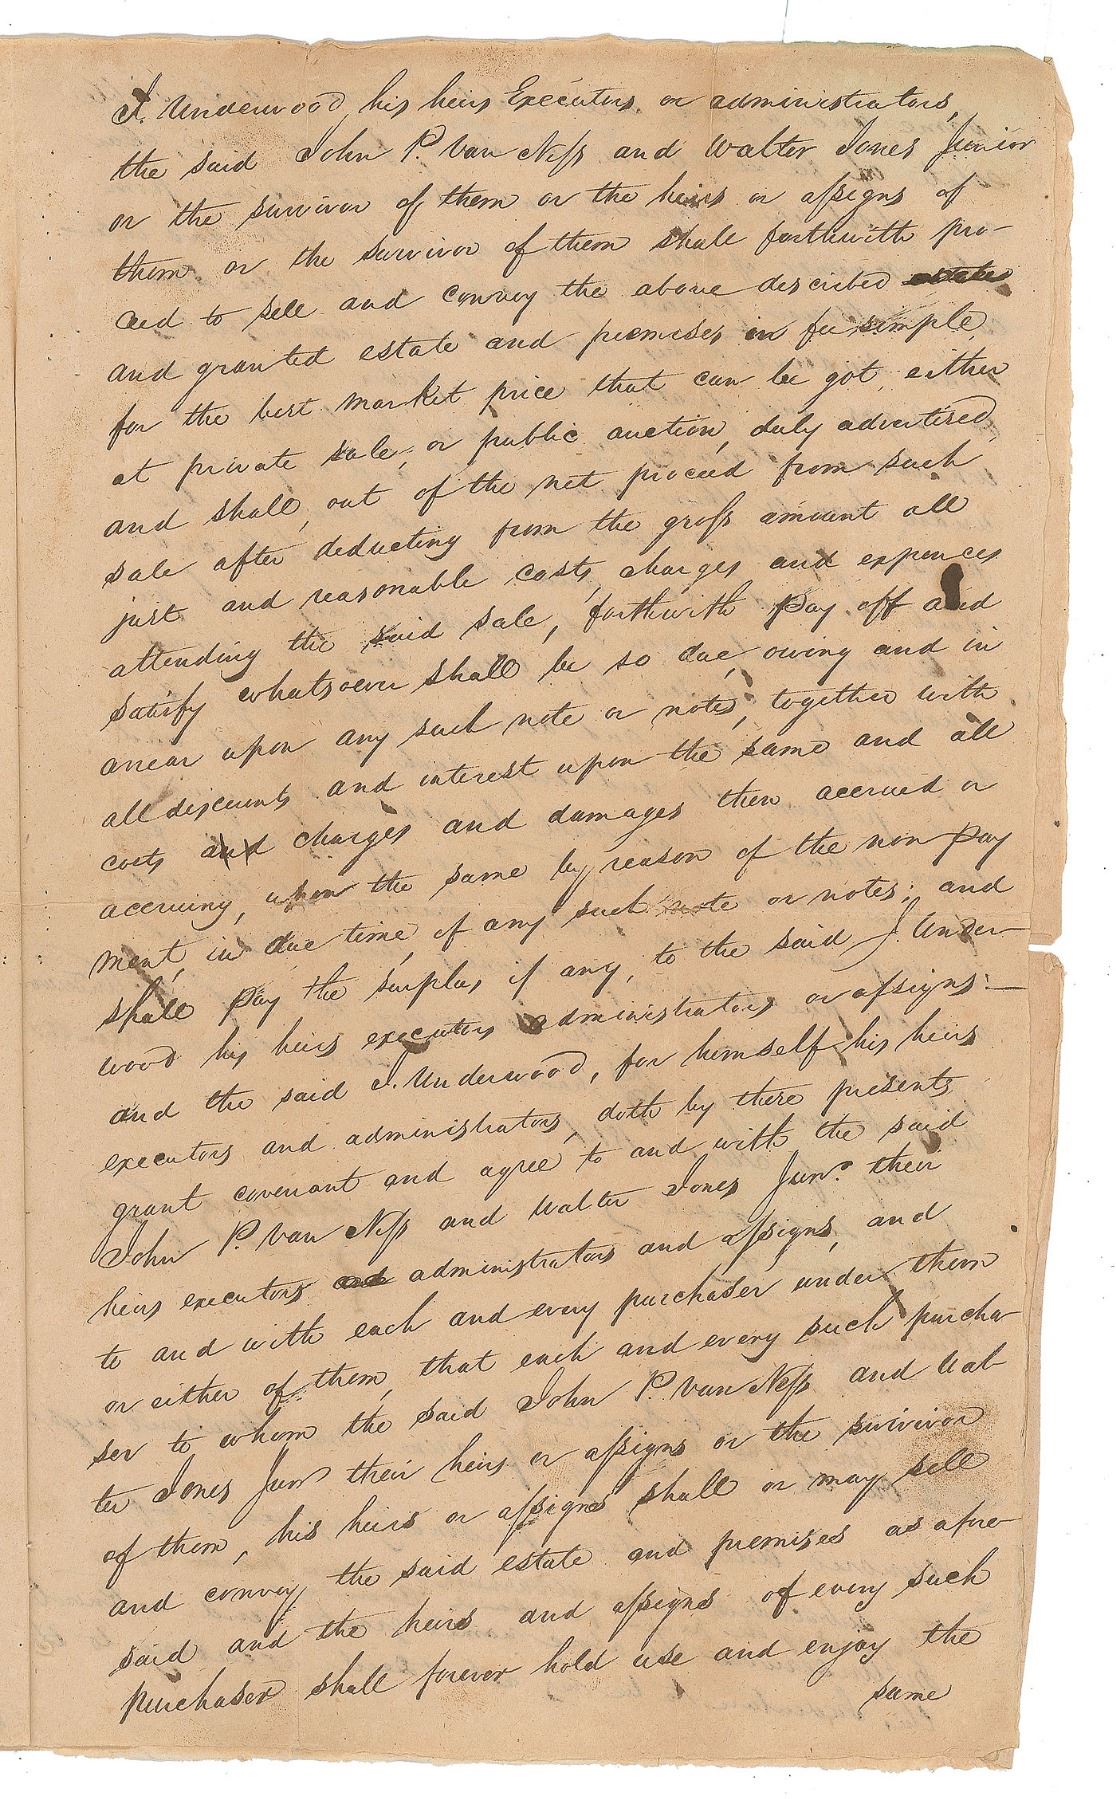 J. Underwood his heirs Executors or administrators,
the said John P. Van Ness and Walter Jones Junior
or the survivor of them or the heirs or assigns of
them or the survivor of them shall forthwith pro-
ceed to sell and convey the above described estate
and granted estate and premises in fee simple,
for the best market price that can be got either
at private sale, or public auction, duly advertised,
and shall, out of the net proceed from such
sale after deducting from the gross amount all
just and reasonable costs, charges and expences
attending the said sale, forthwith pay off and
satisfy whatsoever shall be so due, owing and in
arrear upon any such note or notes, together with
all discounts and interest upon the same and all
costs and charges and damages then accrued or
accruing, upon the same by reason of the non pay
ment, in due time, of any such note or notes; and
shall pay the surplus, if any, to the said J. Under-
wood his heirs executors administrators or assigns:—
and the said J. Underwood, for himself his heirs
executors and administrators, doth by these presents
grant covenant and agree to and with the said
John P. Van Ness and Walter Jones Junr. their
heirs executors and administrators and assigns, and
to and with each and every purchaser under them
or either of them, that each and every such purcha-
ser to whom the said John P. Van Ness and Wal-
ter Jones Junr their heirs or assigns or the survivor
of them, his heirs or assigns shall or may sell
and convey the said estate and premises as afore-
said and the heirs and assigns of every such
purchaser shall forever hold use and enjoy the
same